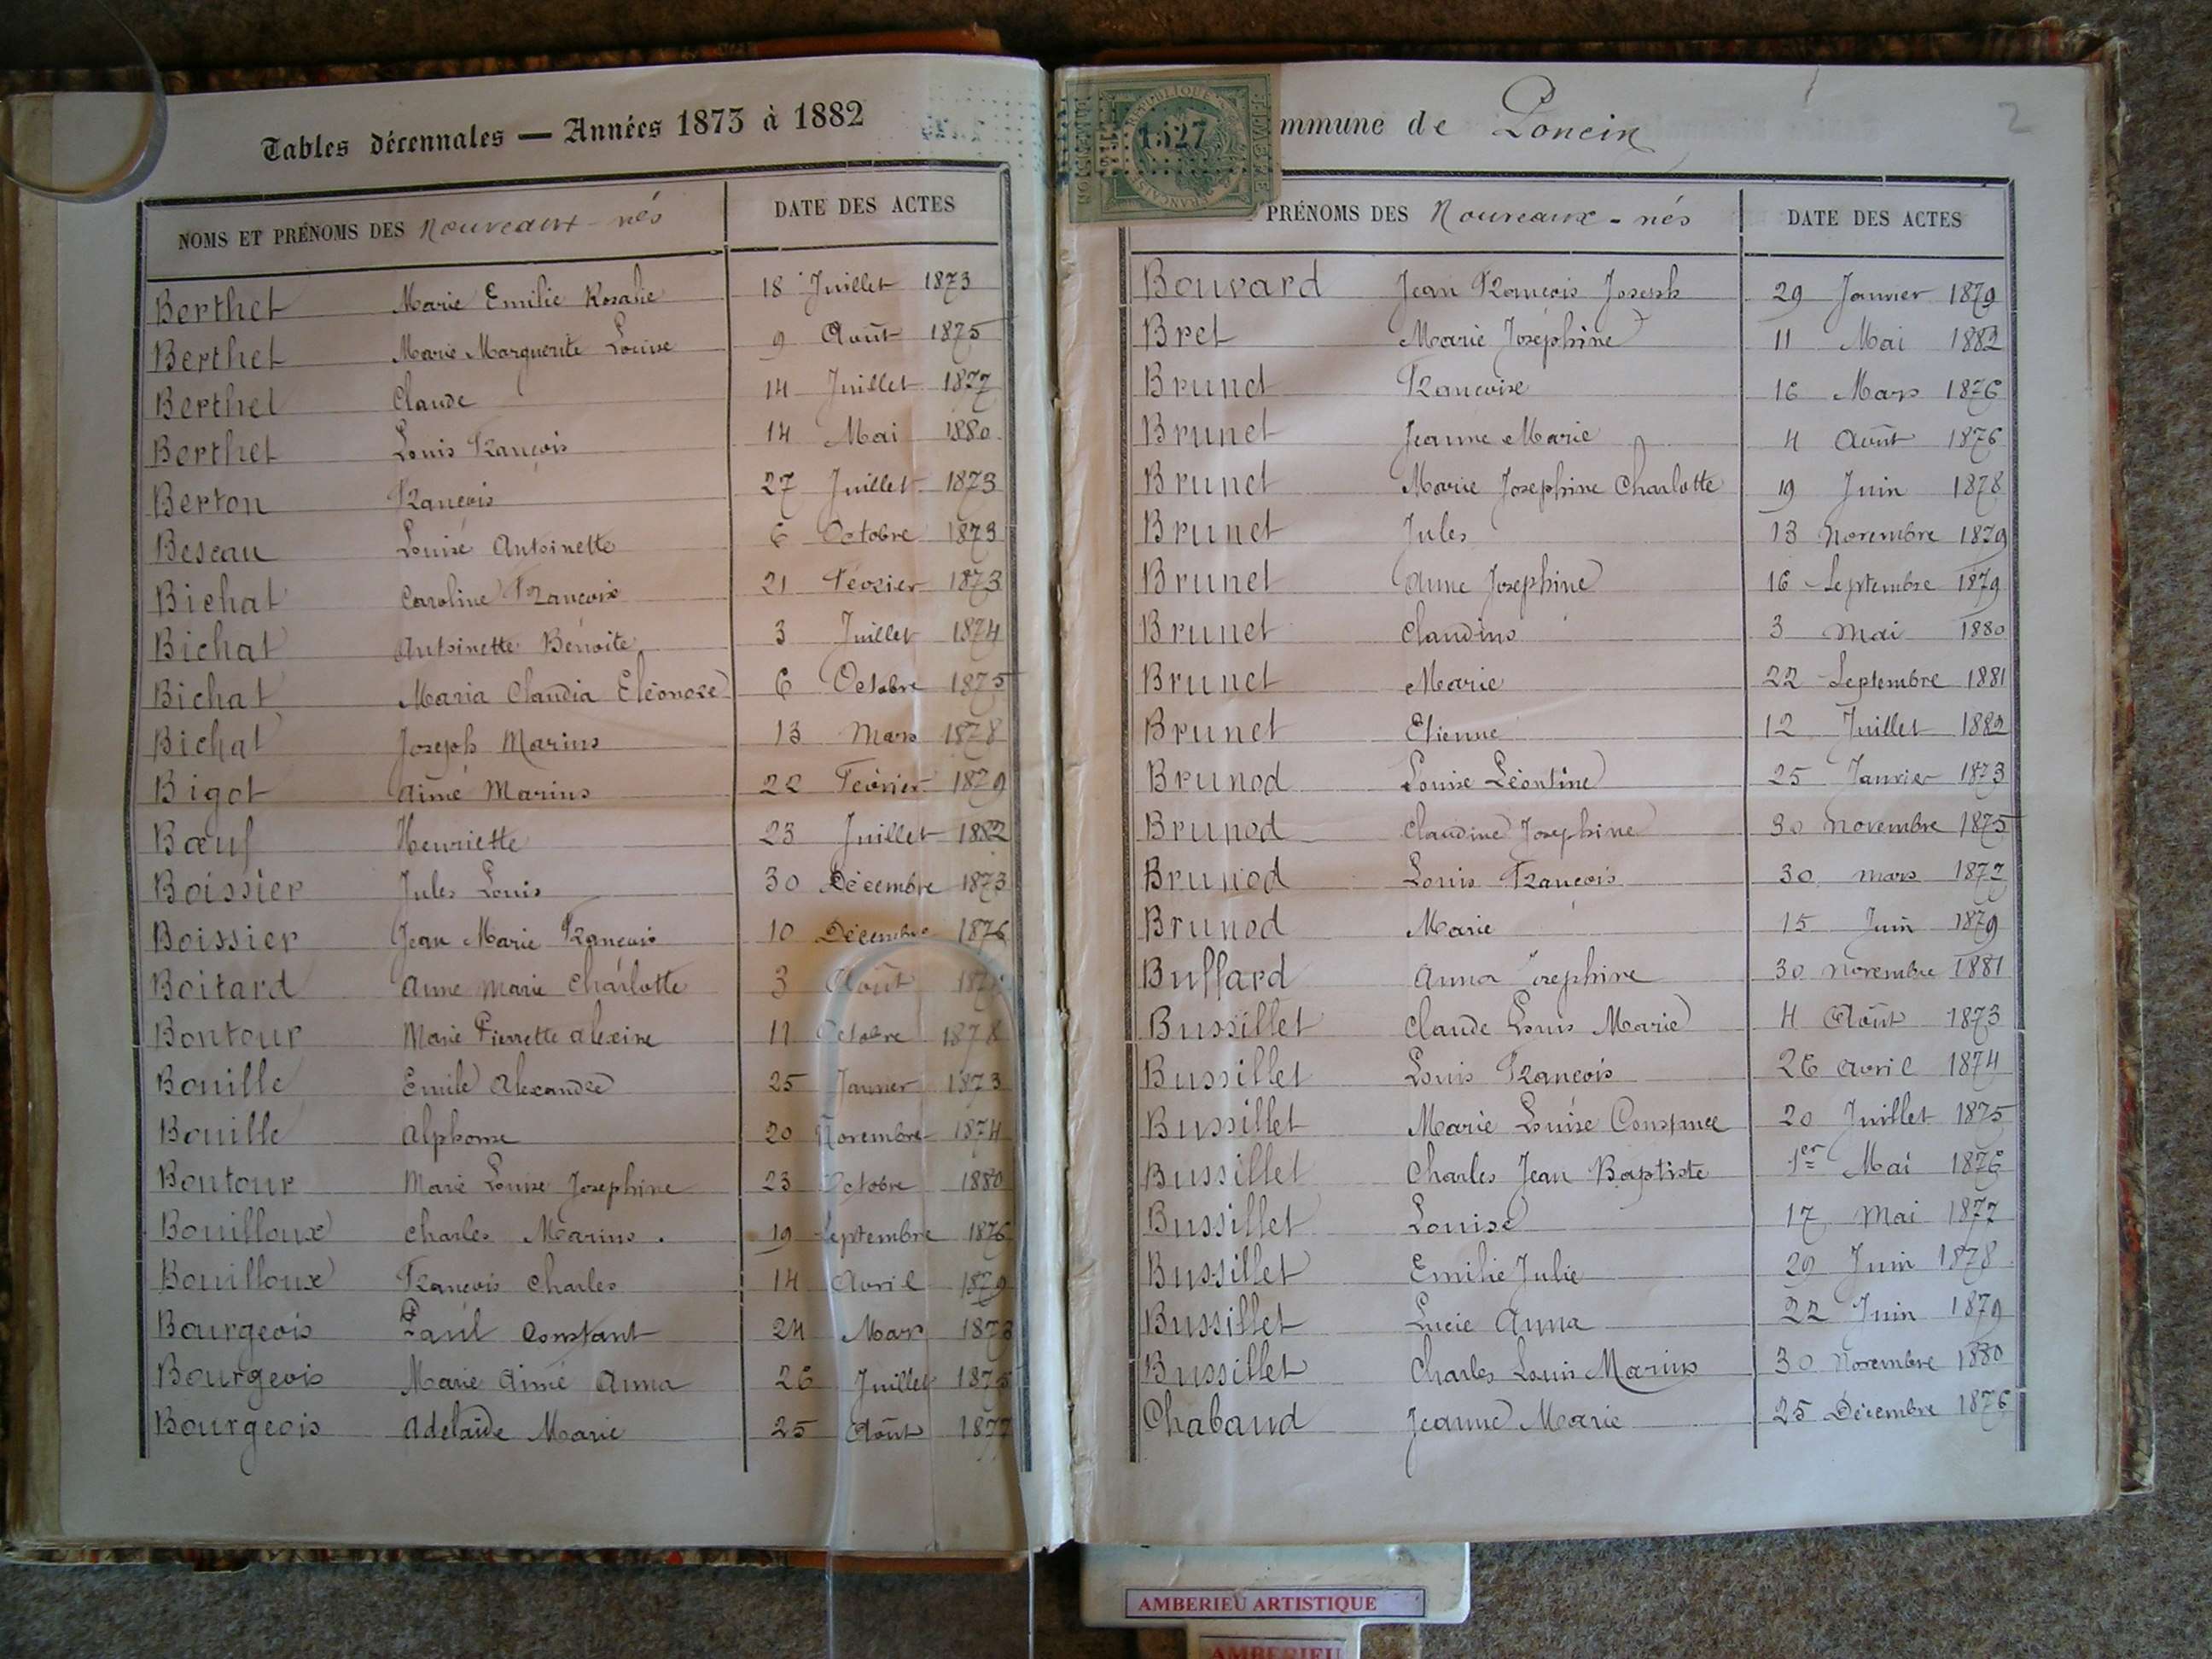 Tables décennales — Années 1873 à 1882
NOMS ET PRÉNOMS DES Nouveaux-nés DATE DES ACTES
Berthet Marie Emilie Rosalie 18 Juillet 1873
Berthet Marie Marguerite Louise 9 Août 1875
Berthet Claude 14 Juillet 1877
Berthet Louis François 14 Mai 1880
Berton François 27 Juillet 1873
Beseau Louise Antoinette 6 Octobre 1873
Bichat Caroline Françoise 21 Février 1873
Bichat Antoinette Benoite 3 Juillet 1874
Bichat Maria Claudia Eléonore 6 Octobre 1875
Bichat Joseph Marius 13 Mars 1878
Bigot Aimé Marius 22 Février 1879
Bœuf Henriette 23 Juillet 1882
Boissier Jules Louis 30 Décembre 1873
Boissier Jean Marie François 10 Décembre 1876
Boitard Anne Marie Charlotte 3 Août
Bontour Marie Pierrette Alexine 11 Octobre 1878
Bouille Emile Alexandre 25 Janvier 1873
Bouille Alphonse 20 Novembre 1874
Bontour Marie Louise Josephine 23 Octobre 1880
Bouilloux Charles Marius . 19 Septembre 1876
Bouilloux François Charles 14 Avril 1879
Bourgeois Paul Constant 24 Mars 1873
Bourgeois Marie Aimé Anna 26 Juillet 1875
Bourgeois Adelaïde Marie 25 Août 1877
RÉPUBLIQUE FRANÇAISE
1527
mmune de Poncin
2
PRÉNOMS DES Nouveaux-nés DATE DES ACTES
Bouvard Jean François Joseph 29 Janvier 1879
Bret Marie Joséphine 11 Mai 1882
Brunet Françoise 16 Mars 1876
Brunet Jeanne Marie 4 Août 1876
Brunet Marie Josephine Charlotte 19 Juin 1878
Brunet Jules 13 Novembre 1879
Brunet Anne Josephine 16 Septembre 1879
Brunet Claudius 3 Mai 1880
Brunet Marie 22 Septembre 1881
Brunet Etienne 12 Juillet 1882
Brunod Louise Léontine 25 Janvier 1873
Brunod Claudine Josephine 30 Novembre 1875
Brunod Louis François 30 Mars 1877
Brunod Marie 15 Juin 1879
Buffard Anna Josephine 30 Novembre 1881
Bussillet Claude Louis Marie 4 Août 1873
Bussillet Louis François 26 Avril 1874
Bussillet Marie Louise Constance 20 Juillet 1875
Bussillet Charles Jean Baptiste 1er Mai 1876
Bussillet Louise 17 Mai 1877
Bussillet Emilie Julie 29 Juin 1878
Bussillet Lucie Anna 22 Juin 1879
Bussillet Charles Louis Marius 30 Novembre 1880
Chabaud Jeanne Marie 25 Décembre 1876
AMBERIEU ARTISTIQUE
AMBERIEU